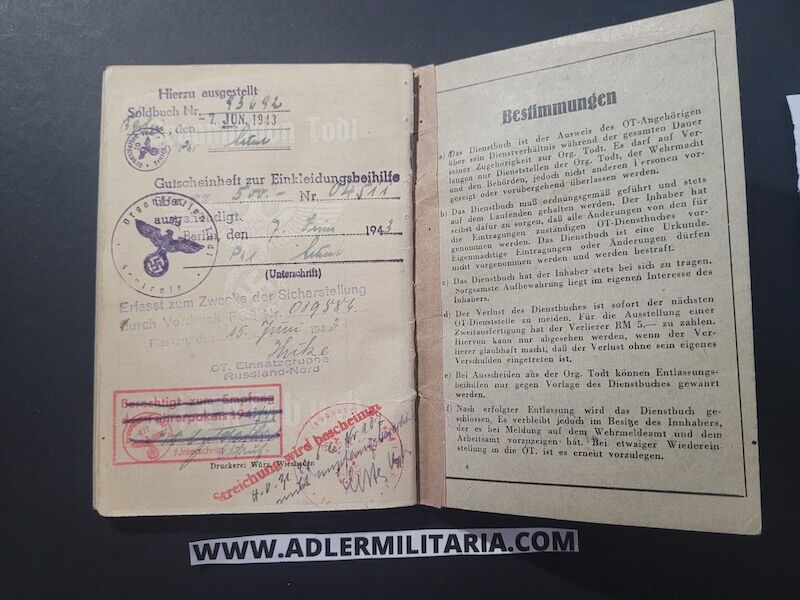 Hierzu ausgestellt
Soldbuch Nr. 93692
den -7. JUN. 1943
Organisation Todt
Gutscheinheft zur Einkleidungsbeihilfe
über 500.- Nr. 04511
ausgehändigt.
Berlin, den 7. Juni 1943
(Unterschrift)
Erfasst zum Zwecke der Sicherstellung
durch Vordruck Nr. 019584
den 15. Juni 194
OT. Einsatzgruppe
Russland-Nord
Berechtigt zum Empfang
(Unterschrift)
Streichung wird bescheinigt
Druckerei Würz, Wiesbaden
Bestimmungen
a) Das Dienstbuch ist der Ausweis des OT-Angehörigen
über sein Dienstverhältnis während der gesamten Dauer
seiner Zugehörigkeit zur Org. Todt. Es darf auf Ver-
langen nur Dienststellen der Org. Todt, der Wehrmacht
und den Behörden, jedoch nicht anderen Personen vor-
gezeigt oder vorübergehend überlassen werden.
b) Das Dienstbuch muß ordnungsgemäß geführt und stets
auf dem Laufenden gehalten werden. Der Inhaber hat
selbst dafür zu sorgen, daß alle Änderungen von den für
die Eintragungen zuständigen OT-Dienstbuches vor-
genommen werden. Das Dienstbuch ist eine Urkunde.
Eigenmächtige Eintragungen oder Änderungen dürfen
nicht vorgenommen werden und werden bestraft.
c) Das Dienstbuch hat der Inhaber stets bei sich zu tragen.
Sorgsamste Aufbewahrung liegt im eigenen Interesse des
Inhabers.
d) Der Verlust des Dienstbuches ist sofort der nächsten
OT-Dienststelle zu melden. Für die Ausstellung einer
Zweitausfertigung hat der Verlierer RM 5.— zu zahlen.
Hiervon kann nur abgesehen werden, wenn der Ver-
lierer glaubhaft macht, daß der Verlust ohne sein eigenes
Verschulden eingetreten ist.
e) Bei Ausscheiden aus der Org. Todt können Entlassungs-
beihilfen nur gegen Vorlage des Dienstbuches gewährt
werden.
f) Nach erfolgter Entlassung wird das Dienstbuch ge-
schlossen. Es verbleibt jedoch im Besitze des Innhabers,
der es bei Meldung auf dem Wehrmeldeamt und dem
Arbeitsamt vorzuzeigen hat. Bei etwaiger Wiederein-
stellung in die OT. ist es erneut vorzulegen.
4
WWW.ADLERMILITARIA.COM